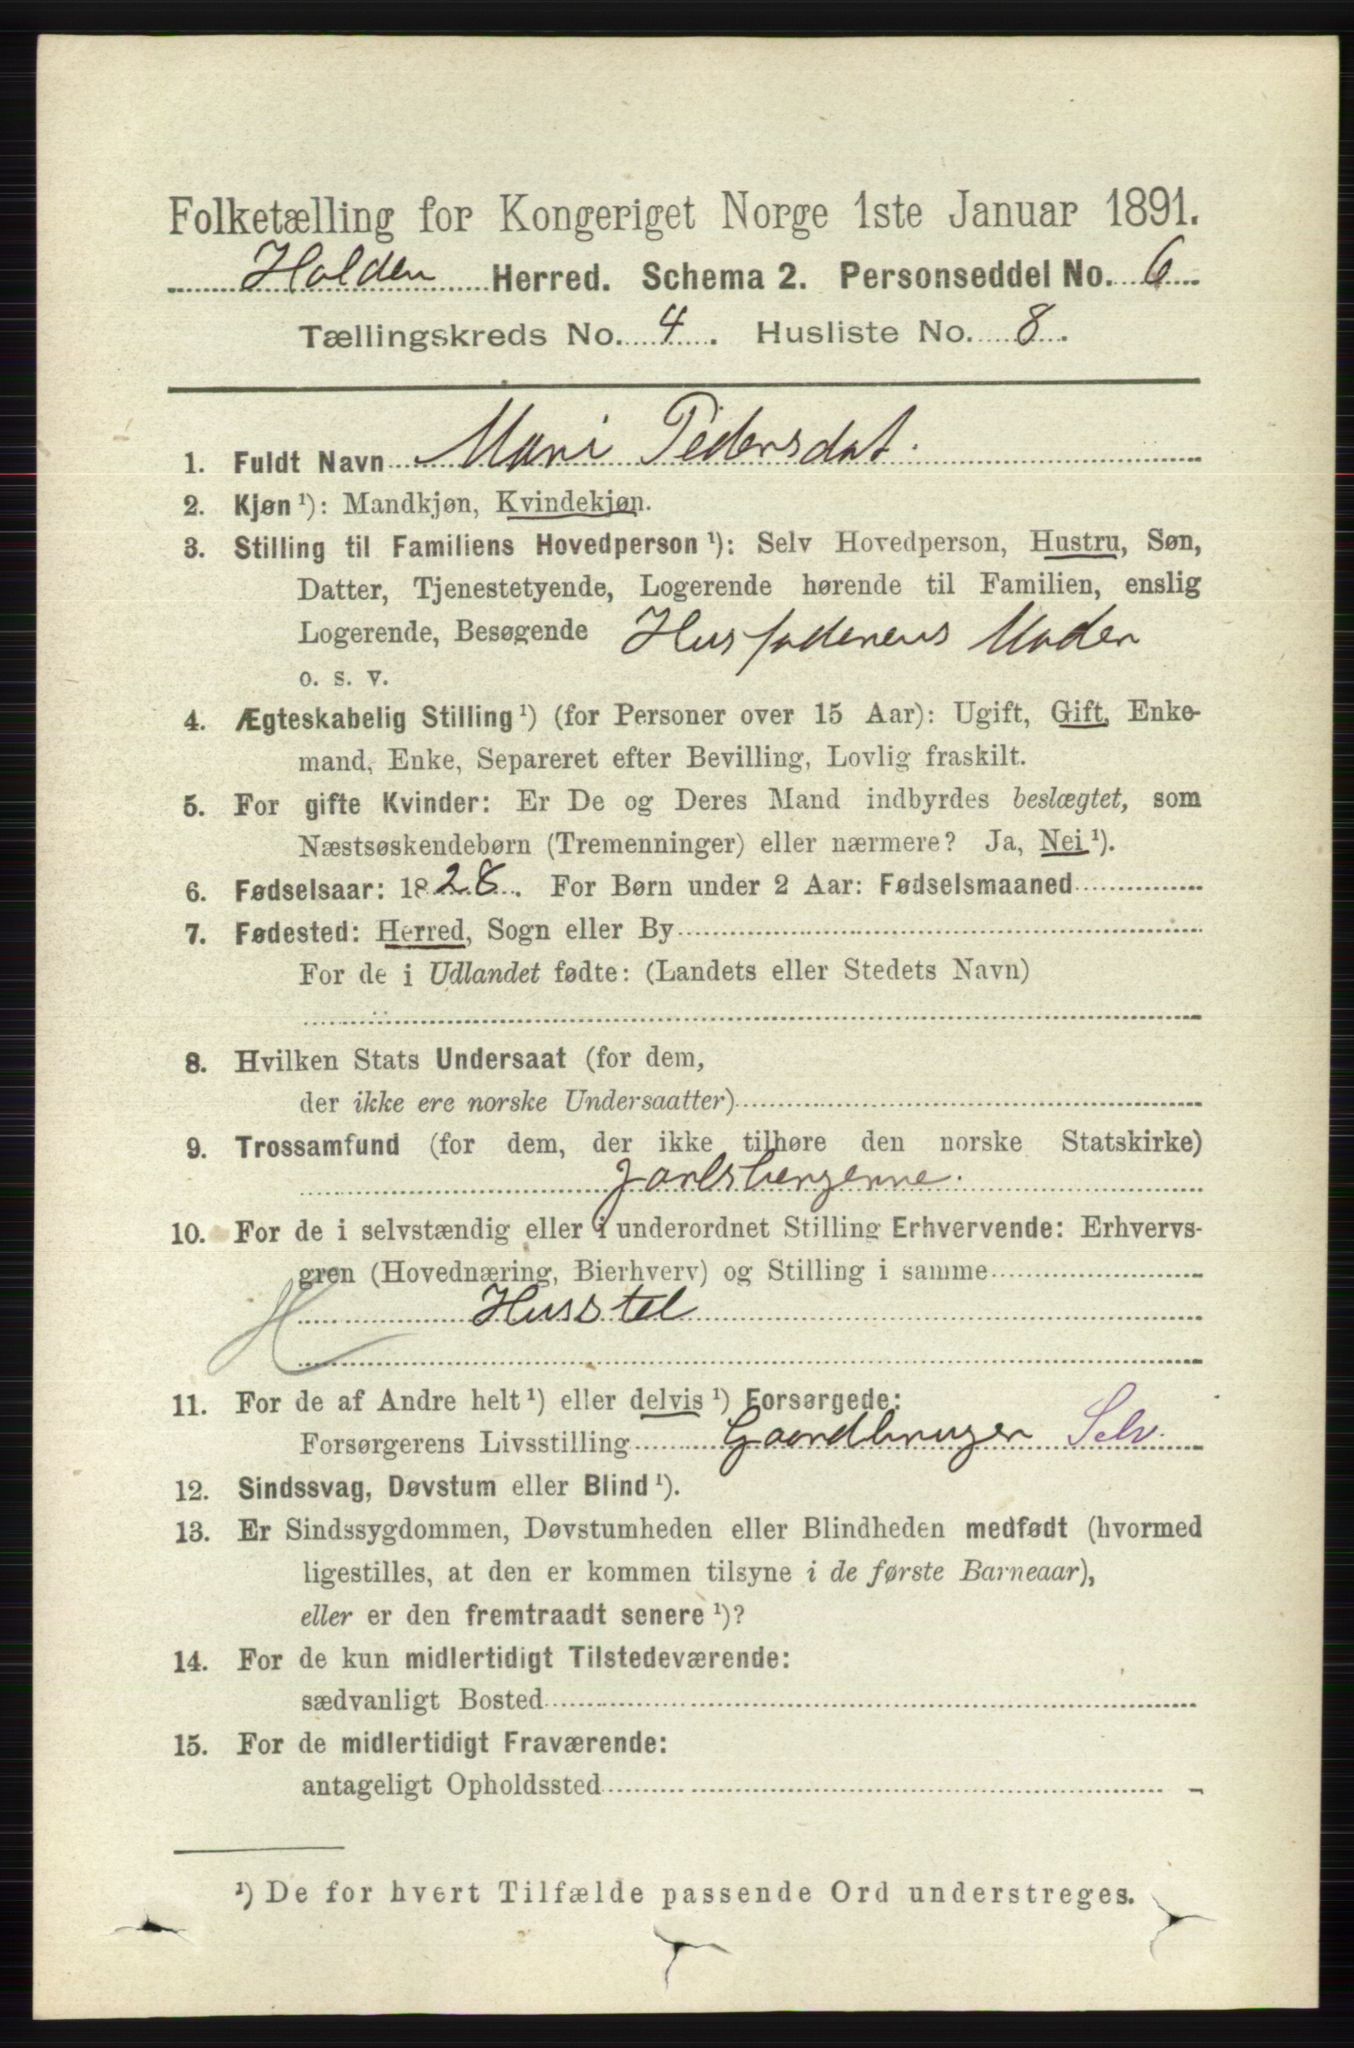 Folketælling for Kongeriget Norge 1ste Januar 1891.
Holden Herred. Schema 2. Personseddel No. 6
Tællingskreds No. 4. Husliste No. 8.
1. Fuldt Navn Mari Pedersdat.
2. Kjøn ¹): Mandkjøn, Kvindekjøn.
3. Stilling til Familiens Hovedperson ¹): Selv Hovedperson, Hustru, Søn,
Datter, Tjenestetyende, Logerende hørende til Familien, enslig
Logerende, Besøgende Husfaderens Moder
o. s. v.
4. Ægteskabelig Stilling ¹) (for Personer over 15 Aar): Ugift, Gift, Enke-
mand, Enke, Separeret efter Bevilling, Lovlig fraskilt.
5. For gifte Kvinder: Er De og Deres Mand indbyrdes beslægtet, som
Næstsøskendebørn (Tremenninger) eller nærmere? Ja, Nei ¹).
6. Fødselsaar: 1828. For Børn under 2 Aar: Fødselsmaaned
7. Fødested: Herred, Sogn eller By
For de i Udlandet fødte: (Landets eller Stedets Navn)
8. Hvilken Stats Undersaat (for dem,
der ikke ere norske Undersaatter)
9. Trossamfund (for dem, der ikke tilhøre den norske Statskirke)
Jarlsbergerne.
10. For de i selvstændig eller i underordnet Stilling Erhvervende: Erhvervs-
gren (Hovednæring, Bierhverv) og Stilling i samme
H Husstel
11. For de af Andre helt ¹) eller delvis ¹) Forsørgede:
Forsørgerens Livsstilling Gaardbruger Selv.
12. Sindssvag, Døvstum eller Blind ¹).
13. Er Sindssygdommen, Døvstumheden eller Blindheden medfødt (hvormed
ligestilles, at den er kommen tilsyne i de første Barneaar),
eller er den fremtraadt senere ¹)?
14. For de kun midlertidigt Tilstedeværende:
sædvanligt Bosted
15. For de midlertidigt Fraværende:
antageligt Opholdssted
¹) De for hvert Tilfælde passende Ord understreges.